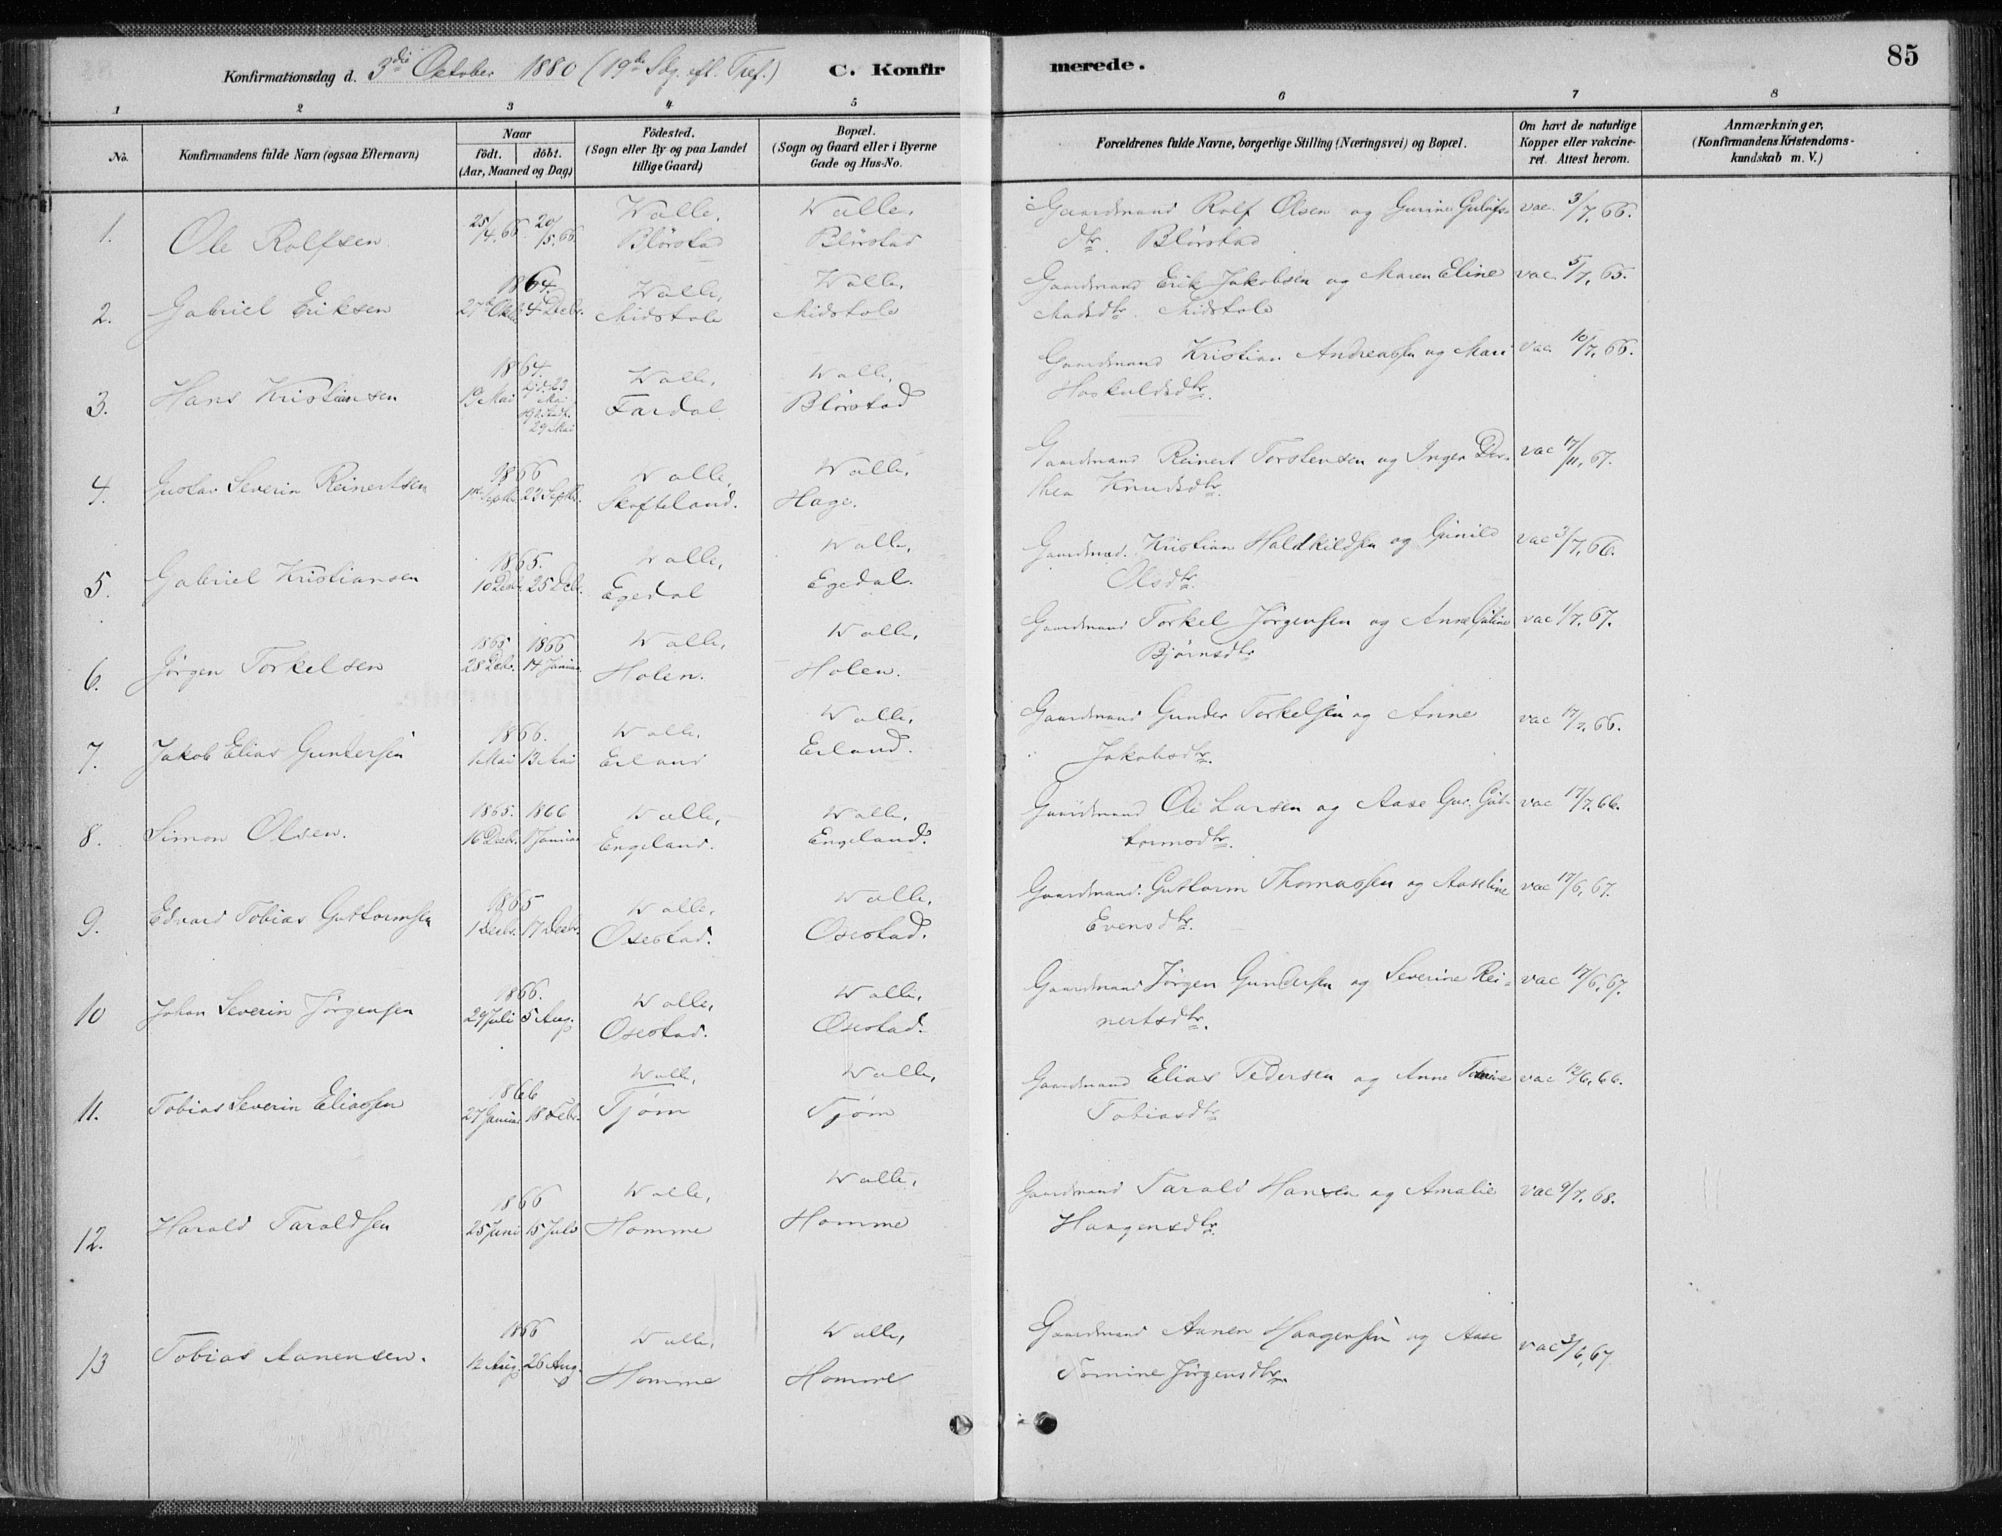 Konfirmationsdag d. 3die October 1880 (19de Sdg. eft. Tref.) C. Konfirmerede. 85
1 2 3 4 5 6 7 8
No. Konfirmandens fulde Navn (ogsaa Efternavn) Naar födt. döbt. (Aar, Maaned og Dag) Födested. (Sogn eller By og paa Landet tillige Gaard) Bopæl. (Sogn og Gaard eller i Byerne Gade og Hus-No. Forældrenes fulde Navne, borgerlige Stilling (Næringsvei) og Bopæl. Om havt de naturlige Kopper eller vakcineret. Attest herom. Anmærkninger, (Konfirmandens Kristendomskundskab m. V.)
1. Ole Rolfsen 25/4.66. 20/5.66. Walle, Blörstad Walle, Blörstad Gaardmand Rolf Olsen og Gurine
dtr. Blörstad vac. 3/7.66.
2. Gabriel Eriksen 1864. 27de Octbr. 4 Decbr. Walle, Midstole Walle, Midstole Gaardmand Erik Jakobsen og Maren Eline
Madsdtr. Midstole vac. 5/7.65.
3. Hans Kristiansen 1864. 19 Mai 23 Mai 29 Mai Walle, Fardal Walle, Blörstad Gaardmand Kristian Andreassen og Mari
Hoskuldsdtr. vac. 10/7.66.
4. Gustav Severin Reinertsen 1866 1ste Septbr. 23 Septbr. Walle, Skofteland. Walle, Hage. Gaardmand Reinert Torstensen og Inger Dor-
thea Knudsdtr. vac 17/11.67.
5. Gabriel Kristiansen 1865. 10 Decbr. 25 Decbr. Walle, Egedal Walle, Egedal. Gaardmd. Kristian Haldkildsen og Gunild
Olsdtr. vac 3/7.66.
6. Jörgen Torkelsen 1865 28 Decbr. 1866 14 Januar Walle, Holen. Walle, Holen. Gaardmand Torkel Jörgensen og Anne
Björnsdtr. vac 1/7.67.
7. Jakob Elias Gundersen 1866. 1 Mai 13 Mai Walle, Eiland Walle, Eiland. Gaardmand Gunder Torkelsen og Anne
Jakobsdtr. vac 17/7.66.
8. Simon Olsen. 1865. 16 Decbr. 1866 1 Januar Walle, Engeland. Walle, Engeland. Gaardmand Ole Larsen og Aase Gut-
tormsdtr. vac 17/7.66.
9. Edvard Tobias Guttormsen 1865 1 Decbr. 17 Decbr. Walle, Osestad. Walle, Osestad. Gaardmand. Guttorm Thomassen og Aaseline
Evensdtr. vac 17/6.67.
10 Johan Severin Jörgensen 1866. 29 Juli 5 Aug. Walle, Osestad. Walle, Osestad. Gaardmand Jörgen Gundersen og Severine Rei-
nertsdtr. vac 17/6.67.
11. Tobias Severin Eliassen 1866 27 Januar 18 Febr. Walle, Tjöm Walle, Tjöm Gaardmand Elias Pedersen og Anne Tomine
Tobiasdtr vac 12/6.66.
12. Harald Taraldsen 1866 25 Juni 15 Juli Walle, Homme Walle, Homme Gaardmand Tarald Hansen og Amalie
Haagensdtr. vac 9/7.68.
13 Tobias Aanensen. 1866 12 Aug. 26 Aug. Walle, Homme Walle, Homme Gaardmand Aanen Haagensen og Aase
Tomine Jörgensdtr. vac 3/6.67.